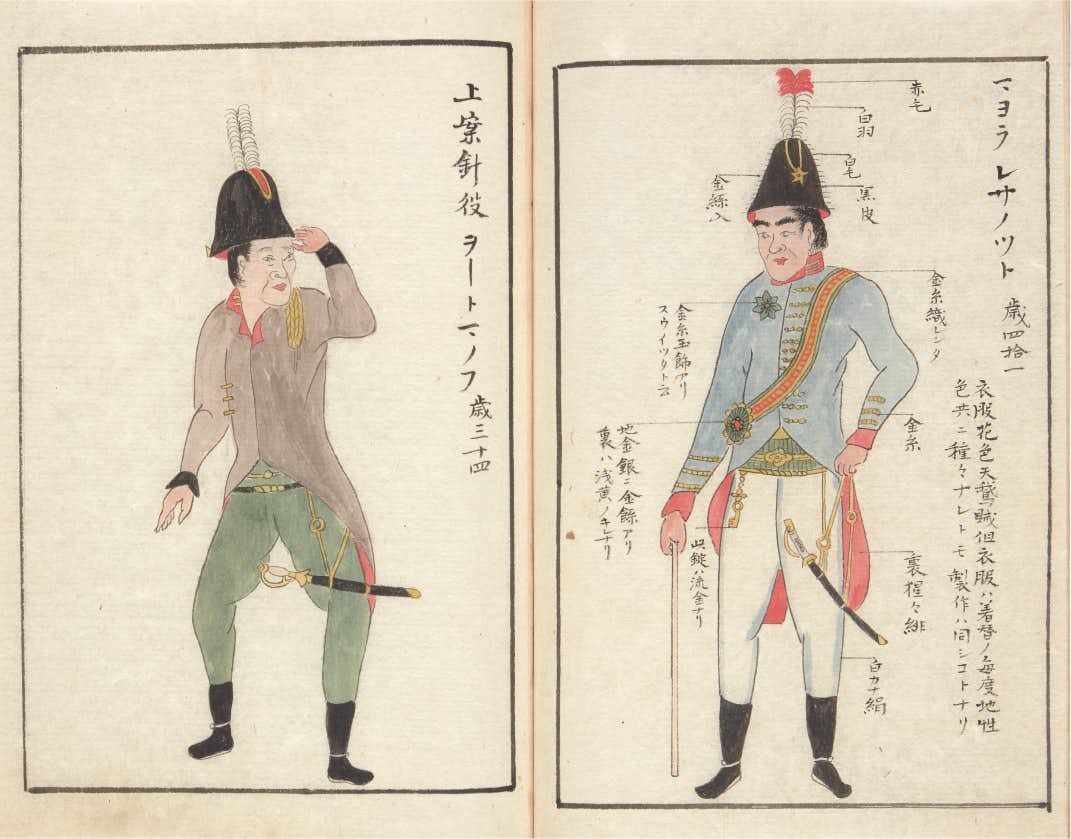 マヨラ レサノツト 歳四拾一
衣服花色天鵞贓但衣服ハ着替ノ毎度地性
色共ニ種々ナレトモ製作ハ同シコトナリ
赤毛
白羽
白毛
黒皮
金絲入
金糸織レンタ
金糸玉飾アリ
スウイツリト云
金糸
地金銀ニ金餝アリ
裏ハ浅黄ノキレナリ
此錠ハ流金ナリ
裏猩々緋
白カナ絹
上案針役 ヲートマノフ 歳三十四